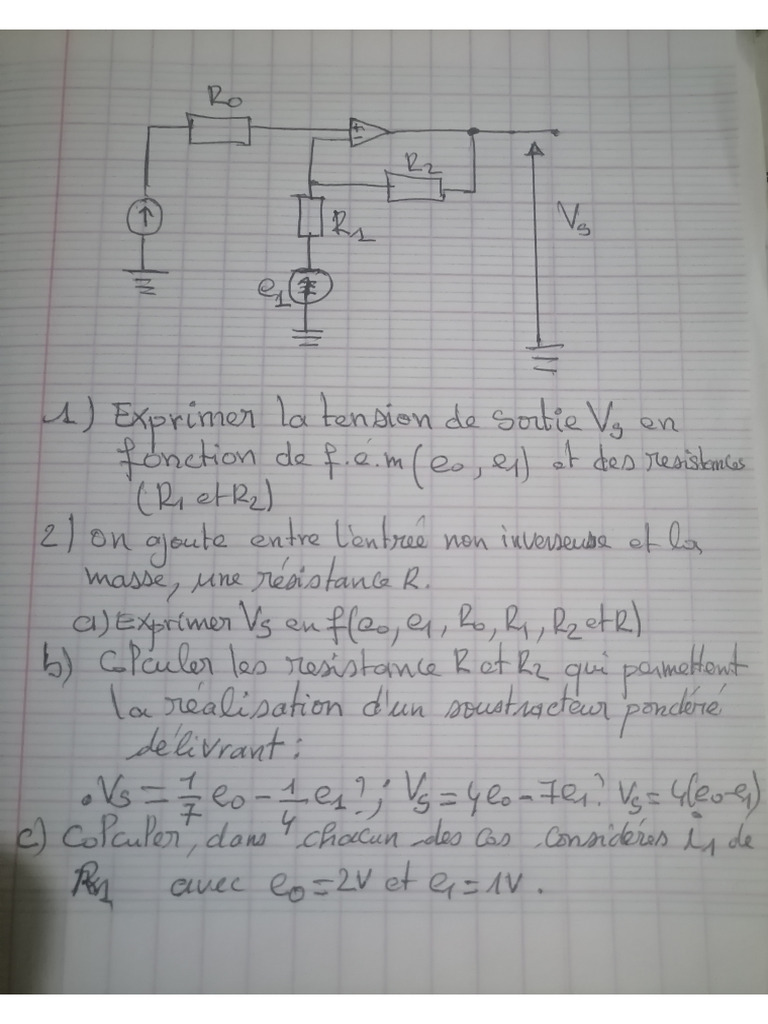 R0
+
-
R2
R1
Vs
e1
1) Exprimer la tension de sortie Vs en
fonction de f.é.m (e0, e1) et des resistances
(R1 et R2)
2) on ajoute entre l'entrée non inverseuse et la
masse, une résistance R.
a) Exprimer Vs en f(e0, e1, R0, R1, R2 et R)
b) Calculer les resistance R et R2 qui permettent
la réalisation d'un soustracteur pondéré
délivrant :
. Vs = 1/7 e0 - 1/4 e1 ? ; Vs = 4e0 - 7e1 ? Vs = 4(e0-e1)
c) Calculer, dans chacun des cas considérés i1 de
R1 avec e0 = 2V et e1 = 1V.